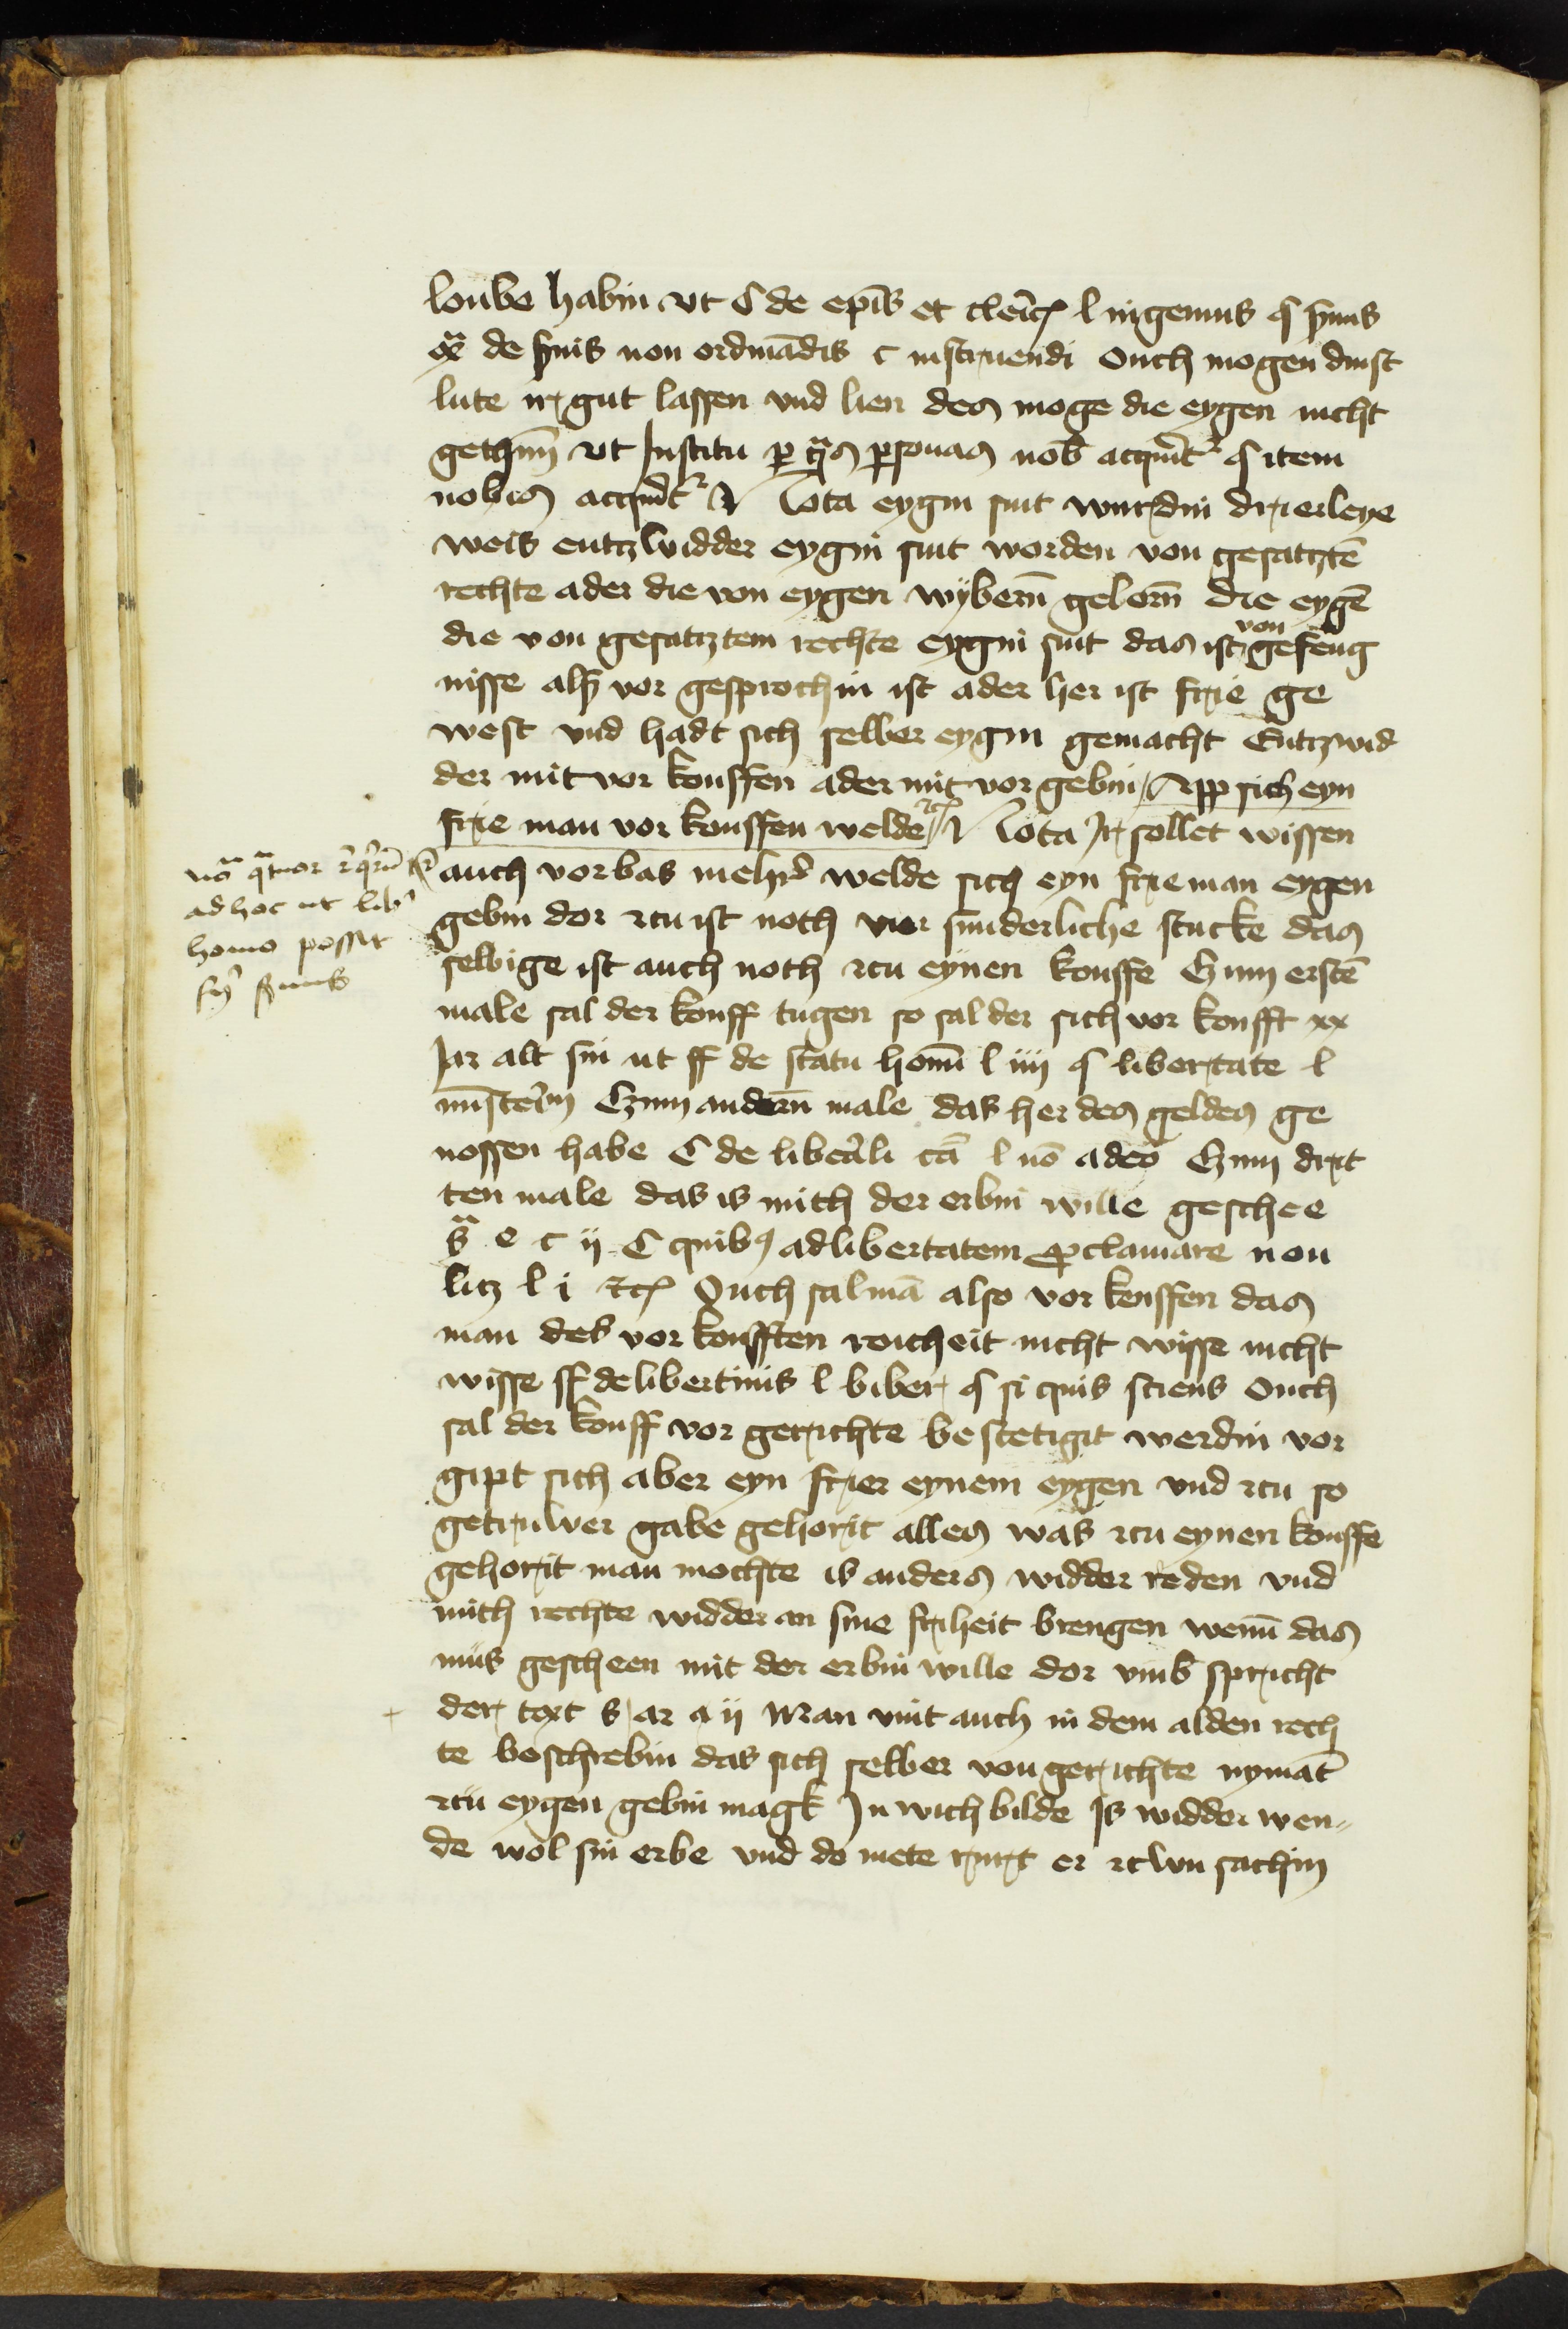 loube habin ut C de epīs et cleric l ingenuus § seruus
ex̄ de seruis non ordinādis c instruendi Ouch mogen dinst
lute ir gut lassen vnd lien des moge die eygen nicht
gethun ut Institu per quas personas nob acquirit § item
nobis acquirit Nota eygin sint wurdin drierleye
weis entzwidder eygin sint worden von gesatztē
rechte ader die von eygen wyberin geborn die eygē
die von gesatztem rechte eygin sint das ist von gefeng
nisse alss vor gesprochin ist ader her ist frie ge
west vnd hadt sich selber eygin gemacht Entzwid
der mit vor kouffen ader mit vor gebin App sich eyn
frie man vor kouffen welde etc Nota Ir sollet wissen
auch vorbas mehr welde sich eyn frieman eygen
gebin dor zcu ist noth vier sunderliche stucke das
selbige ist auch noth zcu eynen kouffe Czum erstē
male sal der kouff tugen so sal der sich vor koufft xx
Jar alt sin ut ff de statu homī l iiii § libertate l
Czum andern male das her des geldes ge
nossen habe C de liberali cā l nō adeo Czum drit
ten male das is mith der erbin wille geschee
sª e c ij C quib9 ad libertatem proclamare non
licz l i etc Ouch sal mā also vor kouffen das
man des vor koufften reicheit nicht wisse nicht
wisse ff de libertinis l liber § si quis sciens Ouch
sal der kouff vor gerichte bestetigit werdin vor
gipt sich aber eyn frier eynem eygen vnd zcu so
getruwer gabe gehorit alles was zcu eynen kouffe
gehorit man mochte is anders widder reden vnd
mith rechte widder an sine friheit brengen wenn das
mus gescheen mit der erbin wille dor vmb spricht
der text s ar a ij Man vint auch in dem alden rech
te beschrebin das sich selber von gerichte nymāt
zcu eygen gebin magk In wichbilde Is widder wen
de wol sin erbe vnd do mete ruret er zcwu sachin
nōª quatuor requirūtr
ad hoc ut liber
homo possit
fieri seruus